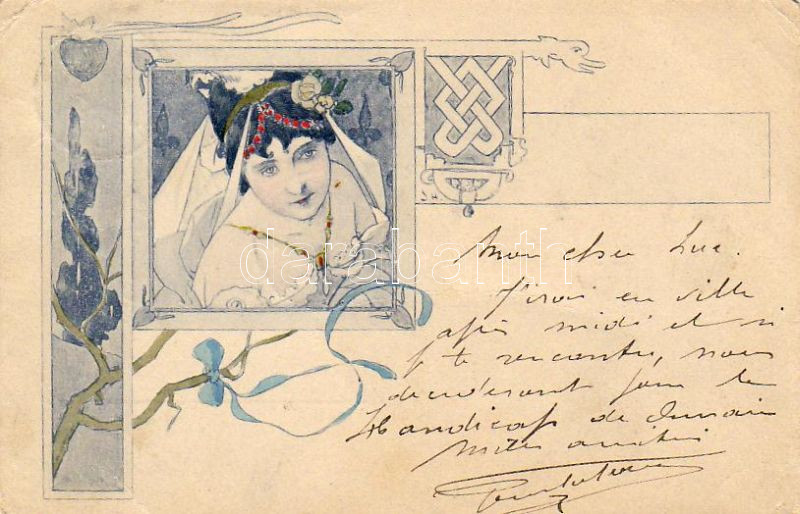 Mon cher Luc.
J'irai en ville
après midi et si
je te rencontre, nous
pour le
Handicap de demain
Mille amitiés
darabanth